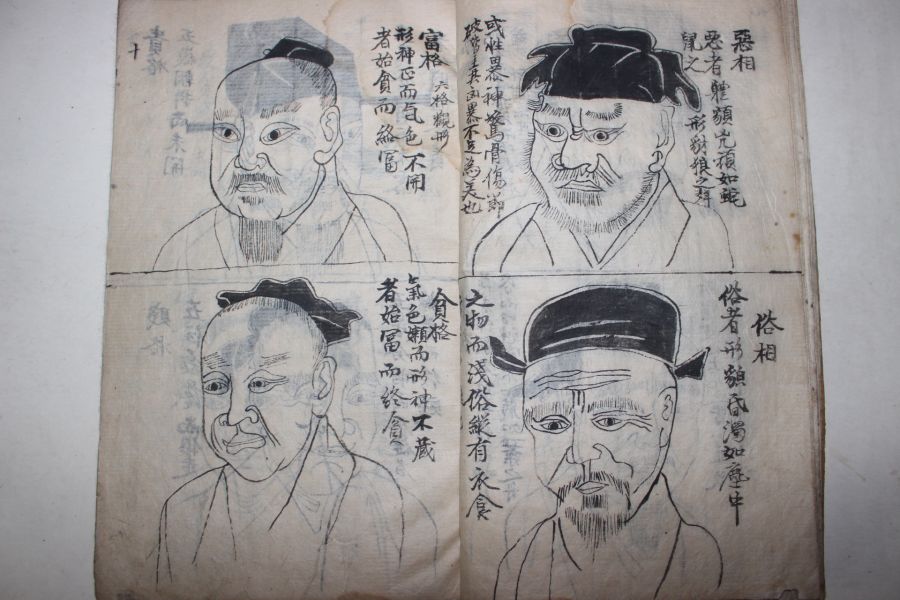 惡相
惡者體貌兇頑如蛇
鼠之形豺狼之聲
或性暴神驚骨傷節
破皆主其凶暴不足為美也
富格
六格觀形
形神正而气色不開
者始貧而終富
俗相
俗者形貌昏濁如塵中
之物而淺俗縱有衣食
貧格
氣色嫩而形神不藏
者始富而終貧